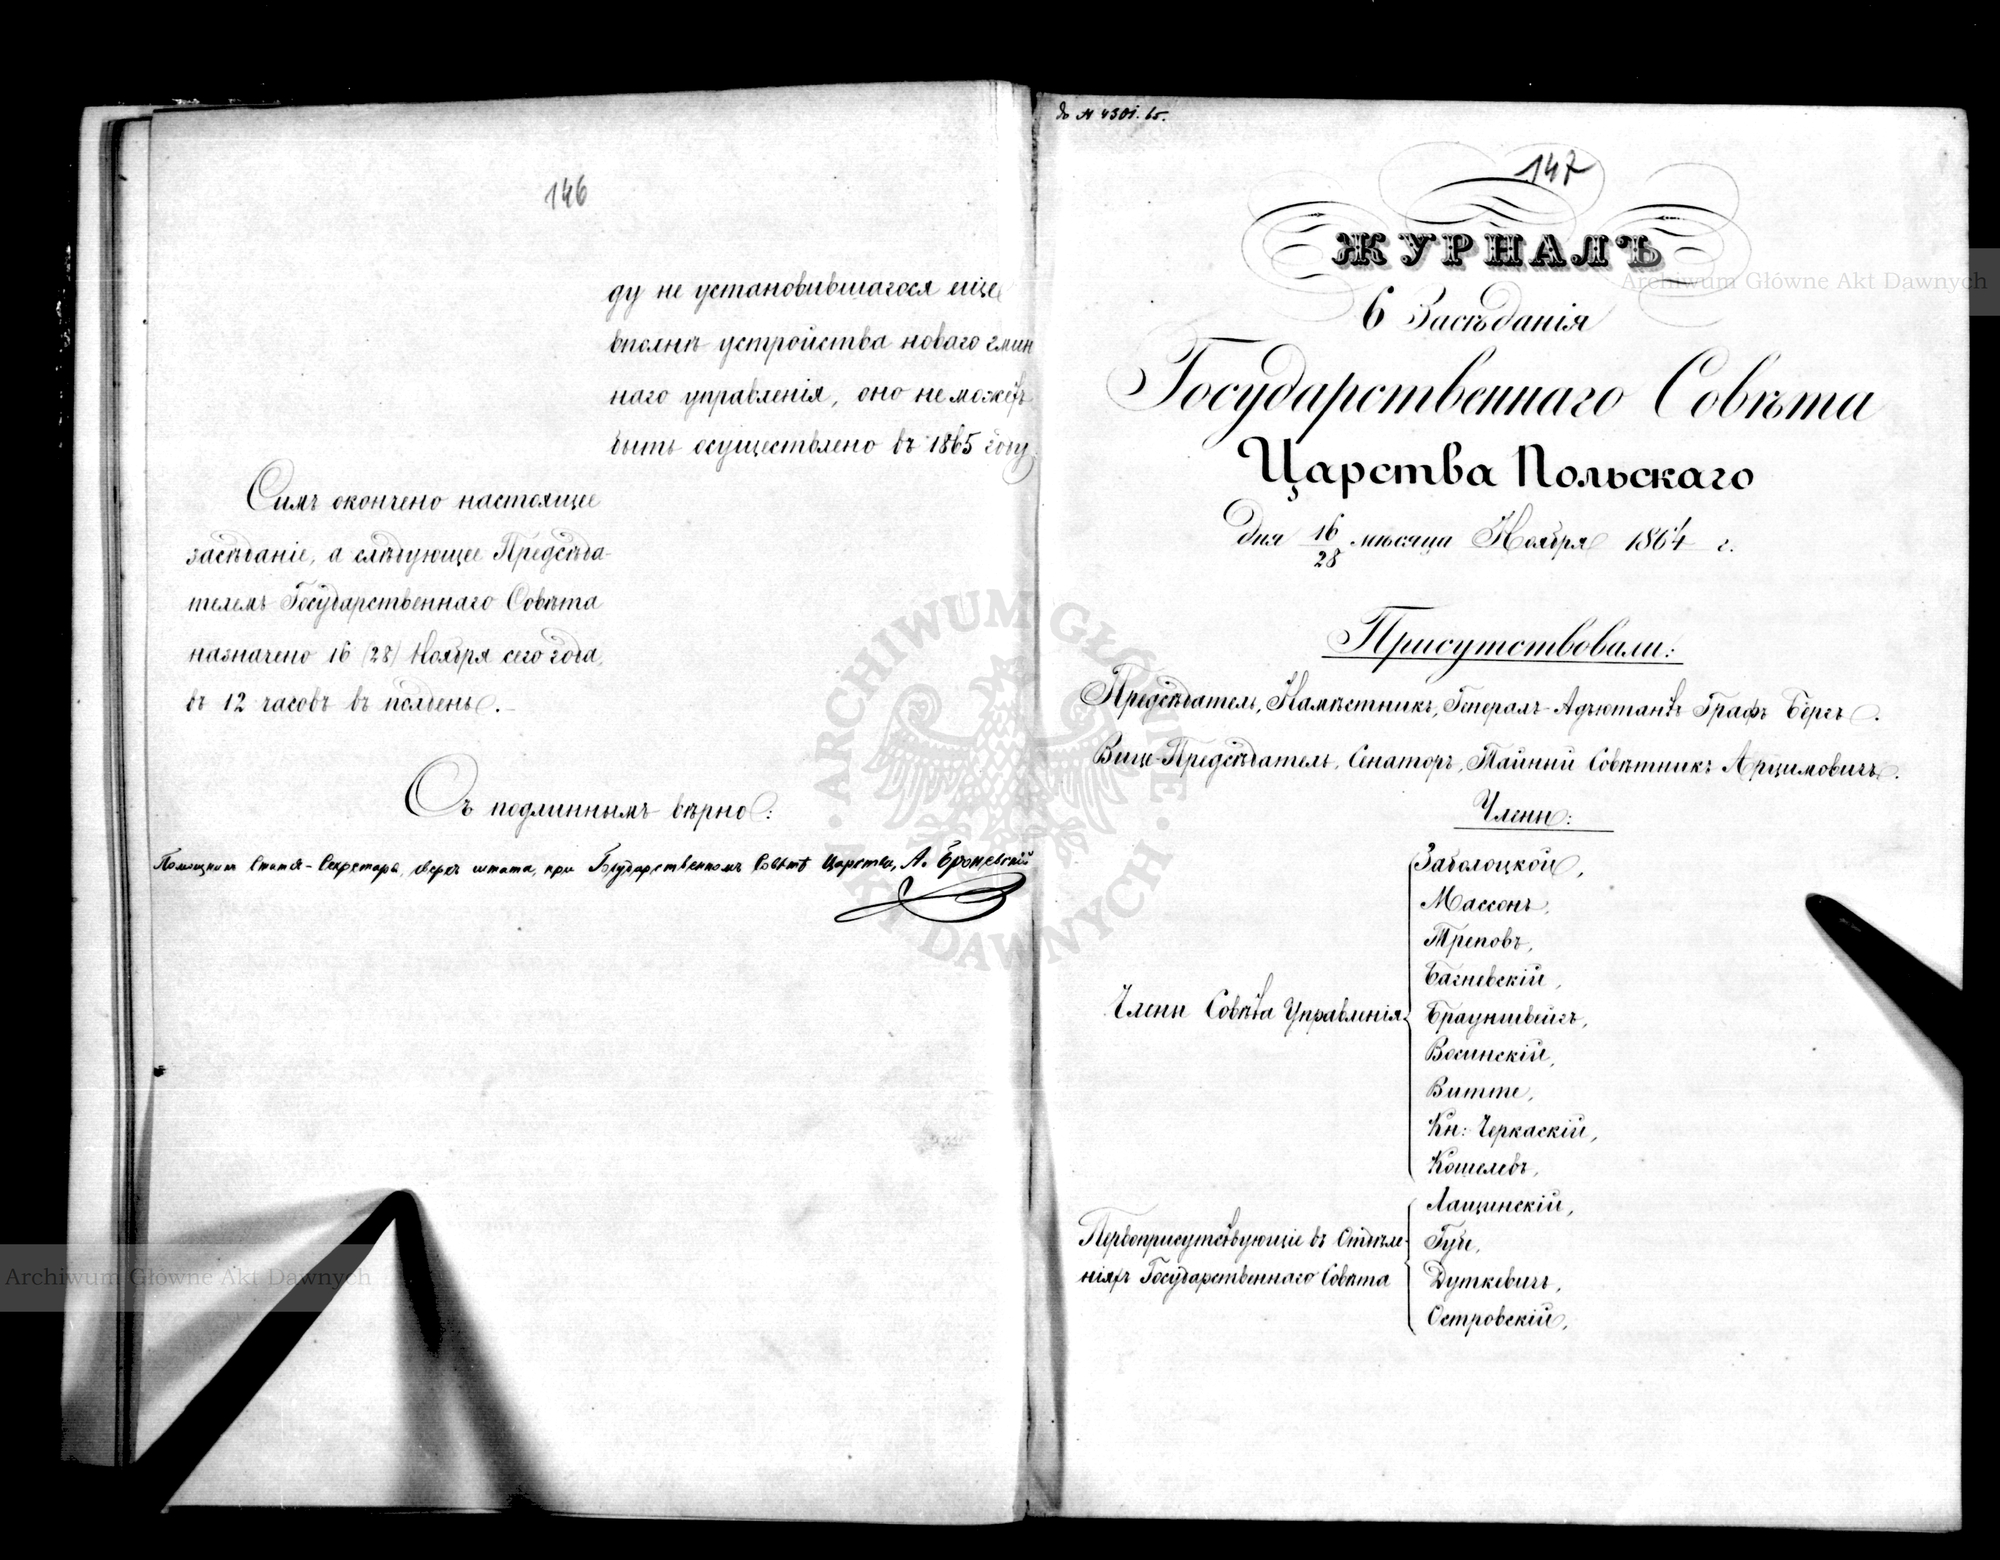 146
ду не установившагося еще
вполнѣ устройства новаго гмин
наго управленія, оно не можетъ
быть осуществлено въ 1865 году.
Симъ окончено настоящее
засѣданіе, а слѣдующее Предсѣда-
телемъ Государственнаго Совѣта
назначено 16 (28) Ноября сего года,
въ 12 часовъ въ полдень.
Съ подлиннымъ вѣрно:
Помощникъ Статсъ-Секретаря, сверхъ штата, при Государственномъ Совѣтѣ Царства, А. Броневскій
до № 4301. 65.
147
ЖУРНАЛЪ
6 Засѣданія
Государственнаго Совѣта
Царства Польскаго
Дня 16/28 мѣсяца Ноября 1864 г.
Присутствовали:
Предсѣдатель, Намѣстникъ, Генералъ-Адъютантъ Графъ Бергъ.
Вице-Предсѣдатель, Сенаторъ, Тайный Совѣтникъ Арцимовичъ.
Члены:
Члены Совѣта Управленія
Заболоцкой,
Массонъ,
Треповъ,
Багневскій,
Брауншвейгъ,
Восинскій,
Витте,
Кн: Черкаскій,
Кошелевъ,
Первоприсутствующіе въ Отдѣле-
ніяхъ Государственнаго Совѣта
Лащинскій,
Губе,
Дуткевичъ,
Островскій,
Archiwum Główne Akt Dawnych
ARCHIWUM GŁÓWNE AKT DAWNYCH
Archiwum Główne Akt Dawnych